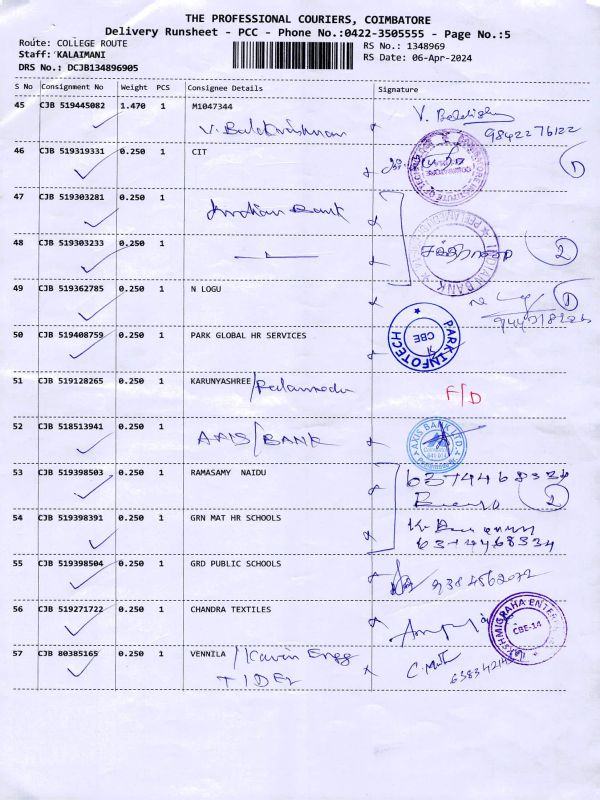 THE PROFESSIONAL COURIERS, COIMBATORE
Delivery Runsheet - PCC - Phone No.:0422-3505555 - Page No.:5
Route: COLLEGE ROUTE RS No.: 1348969
Staff: KALAIMANI RS Date: 06-Apr-2024
DRS No.: DCJB134896905
S No Consignment No Weight PCS Consignee Details Signature
45 CJB 519445082 1.470 1 M1047344
V. Balakrishnan
9842276122
46 CJB 519319331 0.250 1 CIT
1
47 CJB 519303281 0.250 1 Indian Bank
48 CJB 519303233 0.250 1
INDIAN BANK
2
49 CJB 519362785 0.250 1 N LOGU
1
50 CJB 519408759 0.250 1 PARK GLOBAL HR SERVICES
PARK INFOTECH
CBE
51 CJB 519128265 0.250 1 KARUNYASHREE / Peelamedu F/D
52 CJB 518513941 0.250 1 AXIS / BANK
AXIS BANK LTD.
53 CJB 519398503 0.250 1 RAMASAMY NAIDU
6374468334
2
54 CJB 519398391 0.250 1 GRN MAT HR SCHOOLS
6374468334
55 CJB 519398504 0.250 1 GRD PUBLIC SCHOOLS 9384562072
56 CJB 519271722 0.250 1 CHANDRA TEXTILES
CBE-14
57 CJB 80385165 0.250 1 VENNILA / Kavin Engg
TIDEL